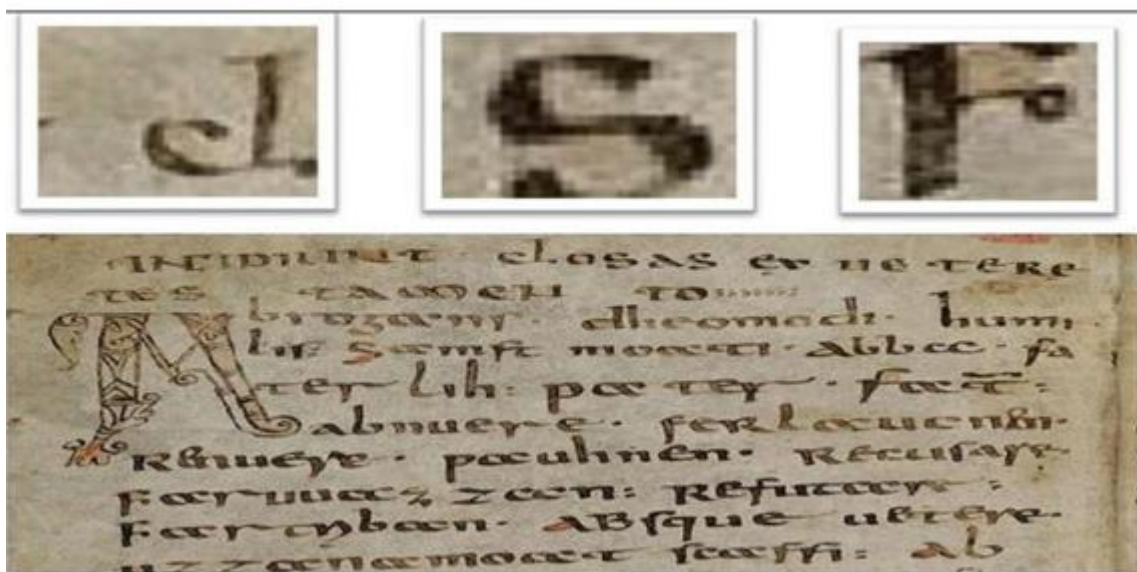 cL S F
INCIPIUNT CLOSAS EX UETERE
TES TAMEN TO
Abrogans · dheomodi · humi
lis · Samft moati · Abbaa · fa
ter lih: pater · fat̄:
abnuere · ferlaucnen ·
Renuere · pauhnen · Recusare
Faruuazzan: Refutare:
Fartriban · ABsque uetere ·
uzzanamoat scaffi: Ab